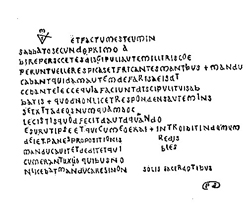 ETFACTUMESTEUMIN
SABBATOSECUNDOPRIMO À
BIREPERSCCETESDISGIPULIAUTEMILLIRISCOE
PERUNTVELLERESPICASETFRICANTESMANTBUS + MANDU
CABANTQUIDAMAUTEMDEFARISAEISDT
CEBANTELECCEQUIAFACIUNTDISCIPULITUISAB
BATIS + QUODNONLICETRESPONDENSAUTEMINS
SETXTADEOSNUMQUAMHOC
LECISTISQUODFECITDAUTDQUANDO
ESURUTIPSEETQUICUMEOERAT + INTROIBITINDOMUM
DEIETPANESPROPOSITIONIS REDIS
MANDUCAUITETDEDITETQUI BLES
CUMERANTUXUIS QUIBUSNO
NLICEBATMANDUCARESINON SOLIS SACERDOTIBUS